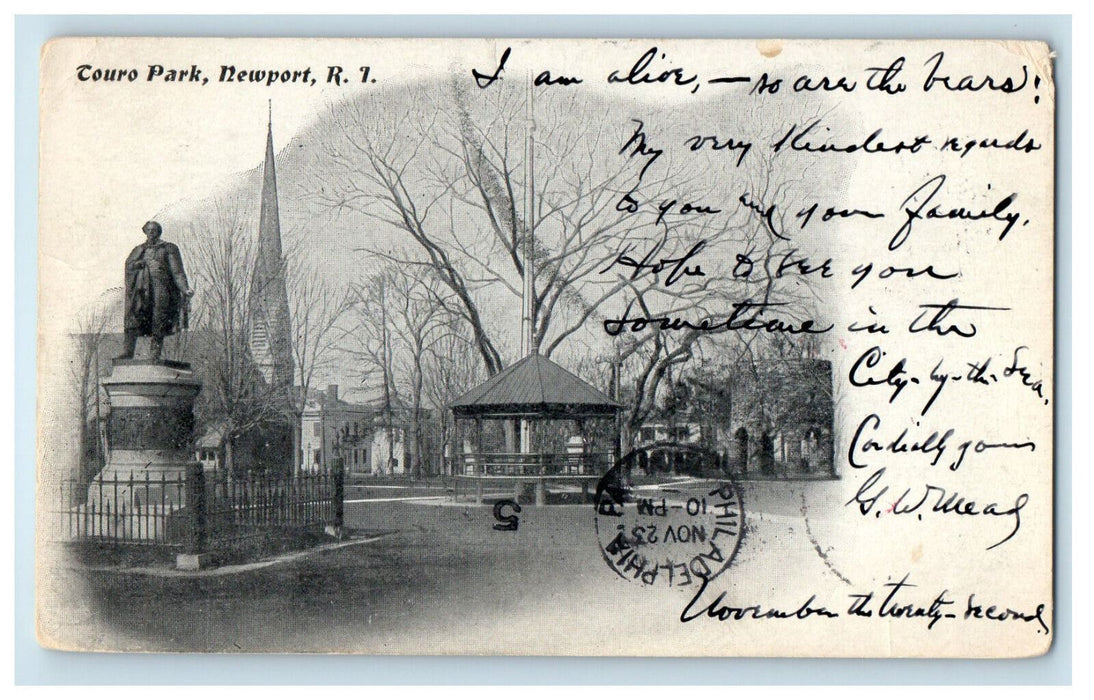 Touro Park, Newport, R. I.
I am alive, — so are the bears!
My very kindest regards
to you and your family.
Hope to see you
sometime in the
City-by-the-Sea.
Cordially yours
G. W. Mead
November the twenty-second
PHILADELPHIA PA
NOV 23
10-PM
5